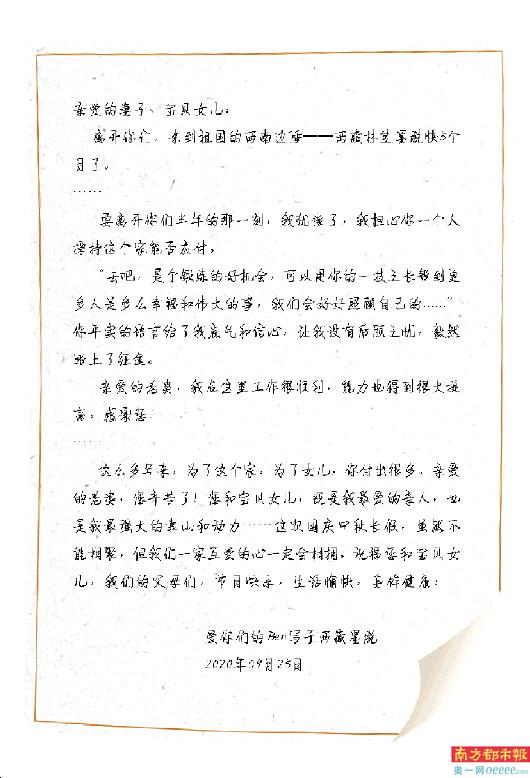 亲爱的妻子、宝贝女儿：
离开你们，来到祖国的西南边陲——西藏林芝墨脱快5个
月了。
……
要离开你们半年的那一刻，我犹豫了，我担心你一个人
操持这个家能否应付。
“去吧，是个锻炼的好机会，可以用你的一技之长帮到更
多人是多么幸福和伟大的事，我们会好好照顾自己的……”
你平实的语言给了我底气和信心，让我没有后顾之忧，毅然
踏上了征途。
亲爱的老婆，我在这里工作很顺利，能力也得到很大提
高，感谢您
……
这么多年来，为了这个家，为了女儿，你付出很多，亲爱
的老婆，您辛苦了！您和宝贝女儿，既是我最爱的亲人，也
是我最强大的靠山和动力……这次国庆中秋长假，虽然不
能相聚，但我们一家互爱的心一定会相拥。祝福您和宝贝女
儿，我们的父母们，节日快乐，生活愉快，身体健康！
爱你们的Ben写于西藏墨脱
2020年09月25日
南方都市报
奥一网oeeee.com